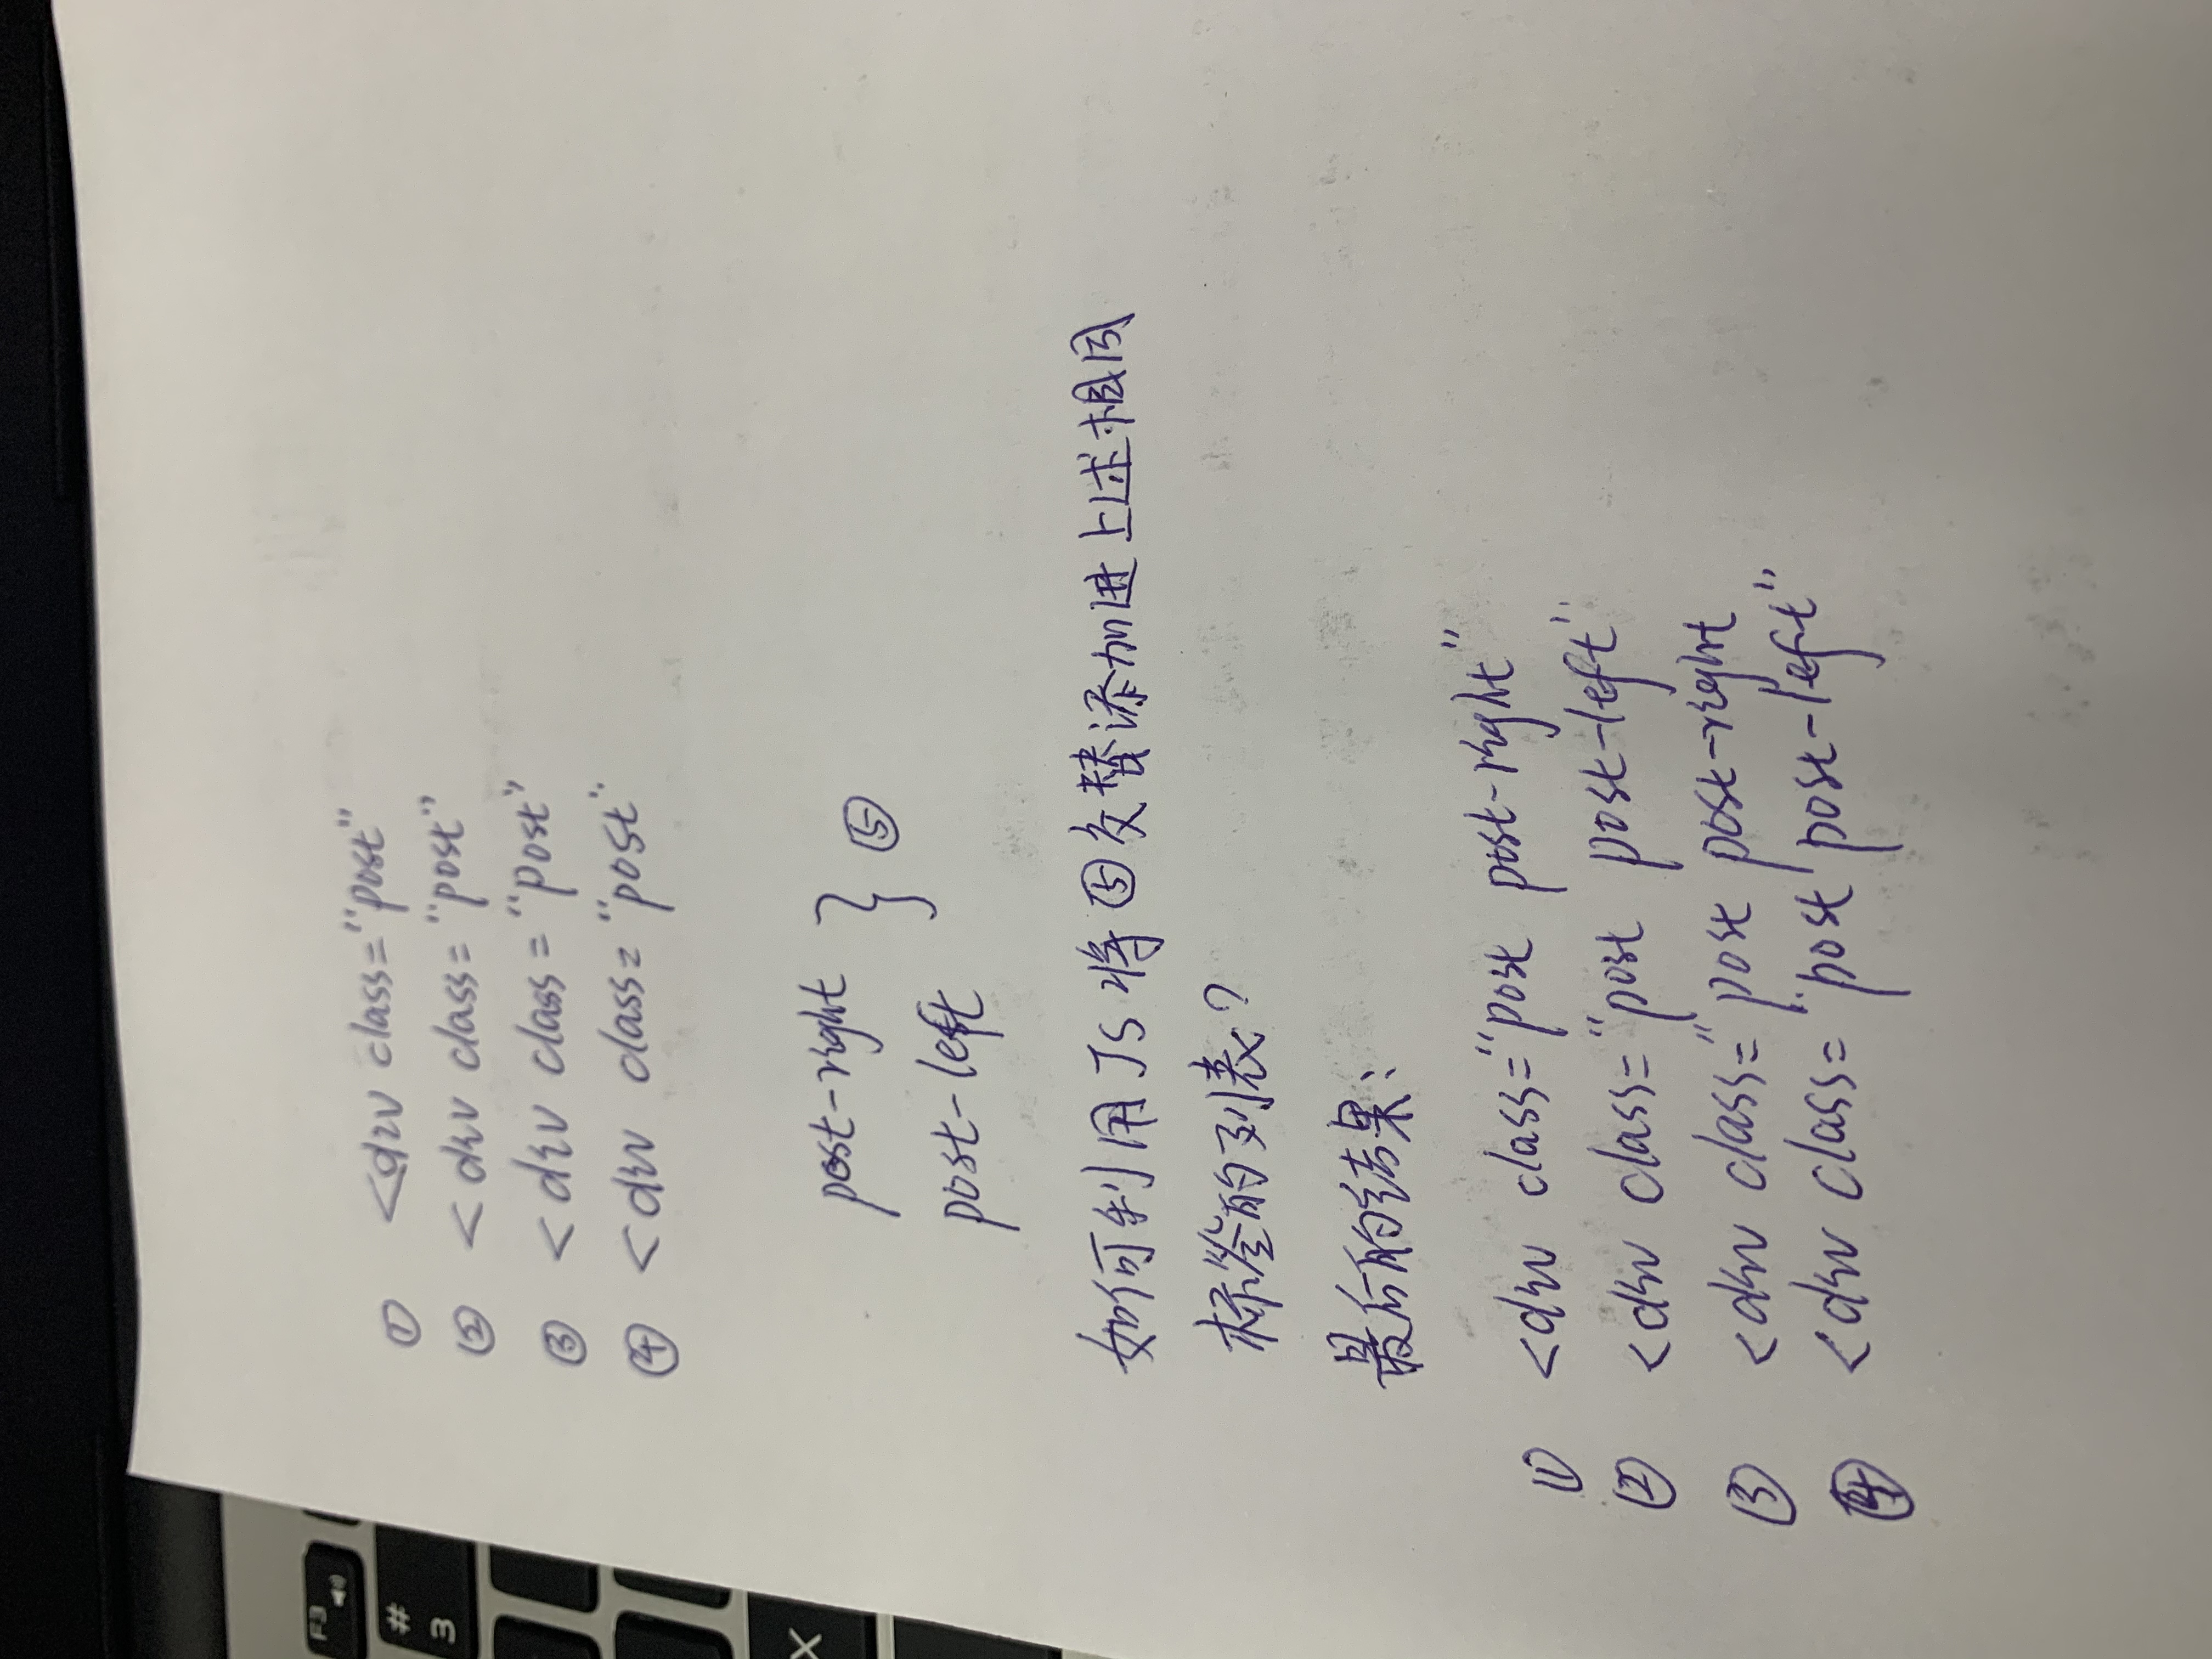 ① <div class="post"
② <div class="post"
③ <div class="post"
④ <div class="post"
post-right } ⑤
post-left
如何利用JS将⑤交替添加进上述相同
标签的列表?
最后的结果:
① <div class="post post-right"
② <div class="post post-left"
③ <div class="post post-right
④ <div class="post post-left"
F3
#
3
X